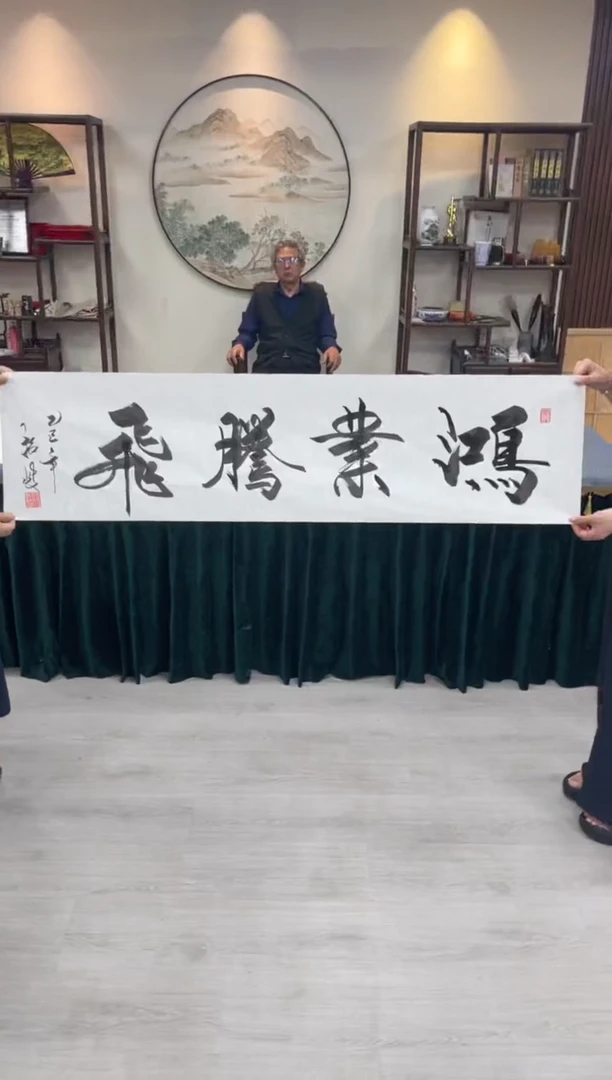 鴻業騰飛
乙巳年